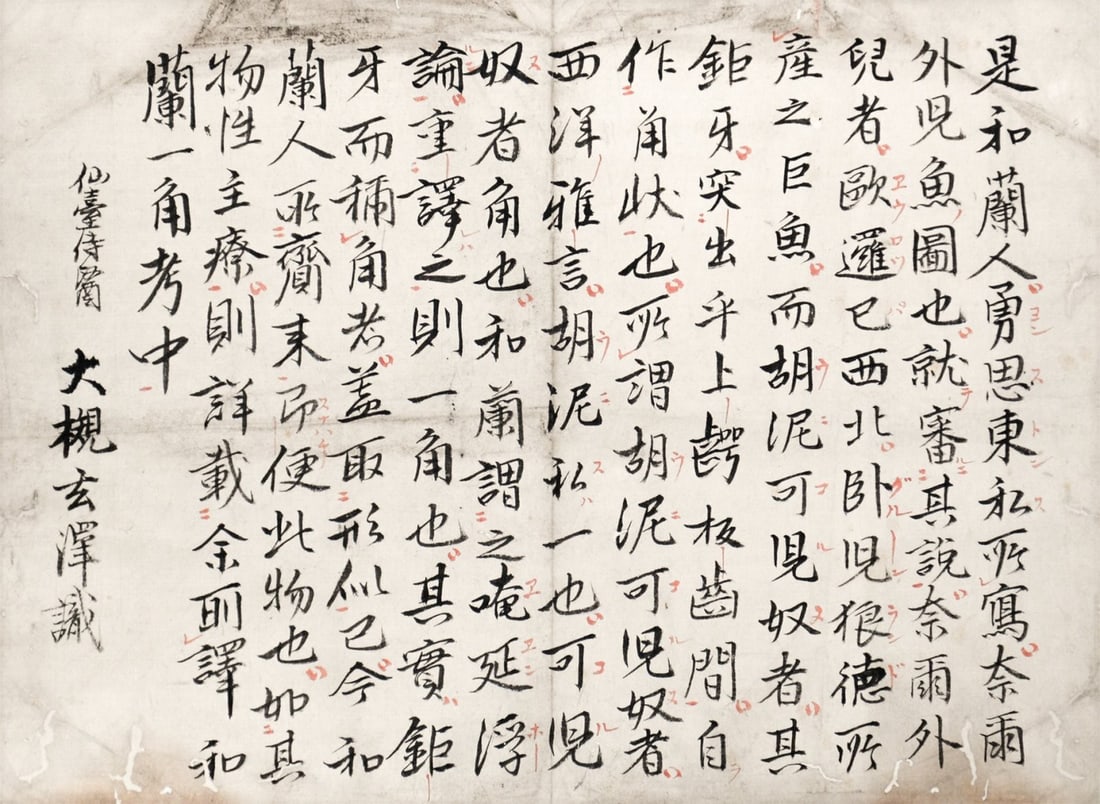 是和蘭人勇思東私所寫奈爾
外児魚圖也就審其說奈爾外
児者歐邏巴西北卧児狼德所
産之巨魚而胡泥可児奴者其
鉅牙突出乎上齶板齒間自
作角状也所謂胡泥可児奴者
西洋雅言胡泥私一也可児
奴者角也和蘭謂之唵延浮
論重譯之則一角也其實鉅
牙而稱角者蓋取形似已今和
蘭人所齎来即便此物也如其
物性主療則詳載余所譯和
蘭一角考中
仙臺侍醫 大槻玄澤識